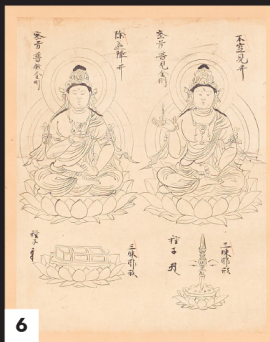 不空見井
密号 普見金剛
除盖障井
密号 金剛
三昧耶形
種子
三昧耶形
種子
6